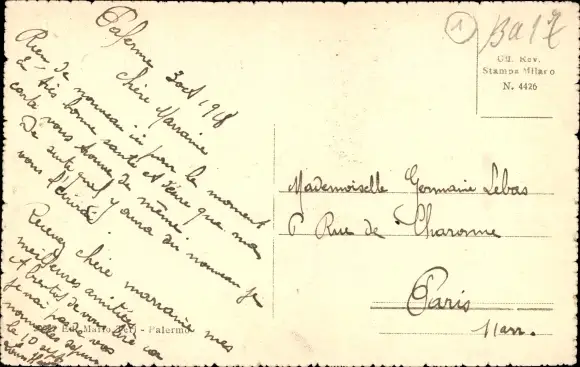 Palerme 3 oct 1918
Chère Marraine
Rien de nouveau ici pour le moment
très bonne santé et désire que ma
carte vous trouve de même
De suite quil y aura du nouveau je
vous l'écrirai
Recevez chère marraine mes
meilleures amitiés
de vous lire car
je n'ai pas de vos
nouvelles depuis
le 10 sept
Ed. Mario - Palermo
1
Uff. Rev.
Stampa Milano
N. 4426
Mademoiselle Germaine Lebas
6 Rue de Charonne
Paris